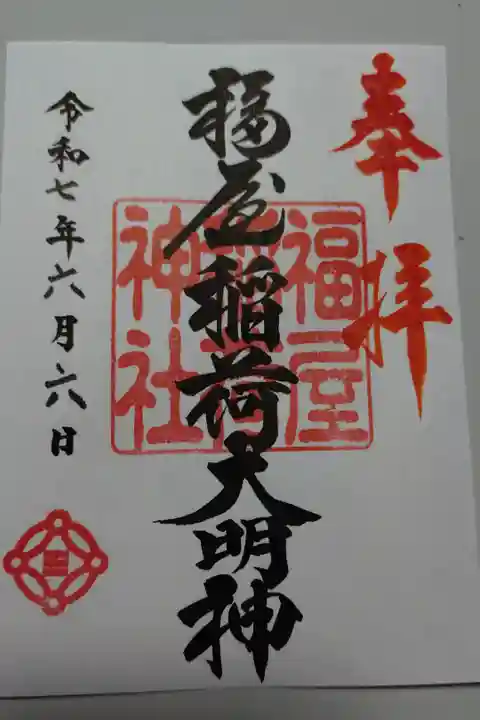 奉拝
福屋稲荷大明神
福屋
稲荷
神社
令和七年六月六日